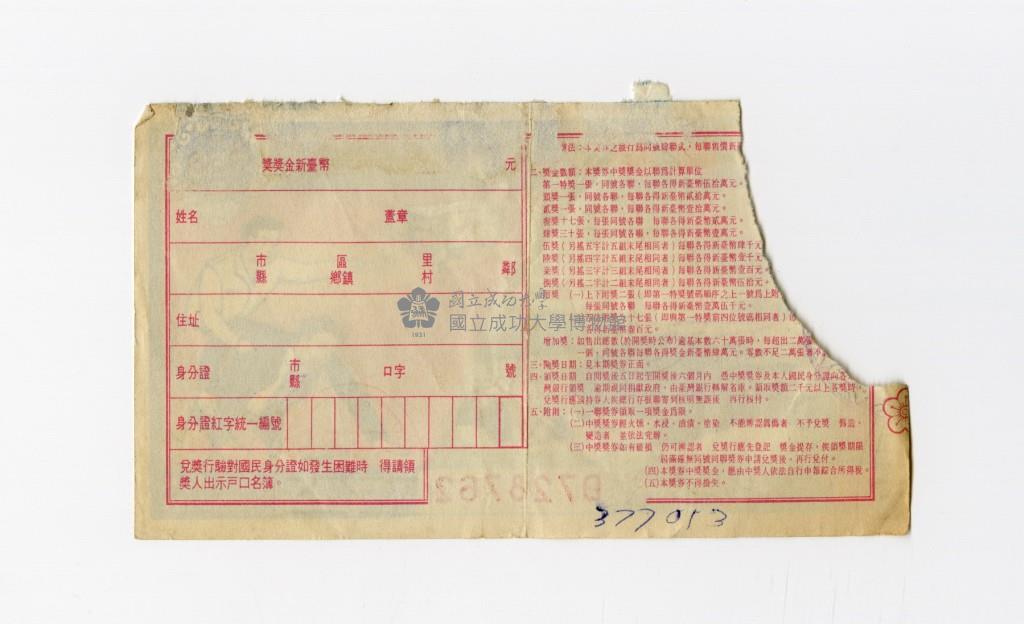 獎獎金新臺幣 元
姓名 蓋章
市 區 里
縣 鄉鎮 村 鄰
住址
身分證 市 口字 號
縣
身分證紅字統一編號
兌獎行驗對國民身分證如發生困難時 得請領
獎人出示戶口名簿。
二、獎金數額：本獎券中獎獎金以聯為計算單位
第一特獎一張，同號各聯，每聯各得新臺幣伍拾萬元。
頭獎一張，同號各聯，每聯各得新臺幣貳拾萬元。
貳獎一張，同號各聯，每聯各得新臺幣壹拾萬元。
獎十七張，每張同號各聯 每聯各得新臺幣貳萬元。
肆獎三十張，每張同號各聯，每聯各得新臺幣壹萬元。
伍獎（另搖五字計五組末尾相同者）每聯各得新臺幣肆千元
陸獎（另搖四字計五組末尾相同者）每聯各得新臺幣壹千元
柒獎（另搖三字計三組末尾相同者）每聯各得新臺幣壹百元
捌獎（另搖二字計二組末尾相同者）每聯各得新臺幣伍拾元
(一)上下附獎二張（即第一特獎號碼順序之上一號為上附
每張同號各聯 每聯各得新臺幣壹萬伍千元。
十七張（即與第一特獎前四位號碼相同者）
百元。
增加獎：如售出總數(於開獎時公布)逾基本數六十萬張時，每超出二萬
一個，同號各聯每聯各得獎金新臺幣肆萬元。零數不足二萬張者不
三、開獎日期：見本期獎券正面。
四、領獎日期 自開獎後五日起至開獎後六個月內 憑中獎獎券及本人國民身分證向各
灣銀行領獎 逾期視同捐獻政府，由臺灣銀行轉解省庫。領取獎額二千元以上各獎時
五、附則：(一)一聯獎券領取一項獎金為限。
(二)中獎獎券經火燬、水浸、油漬、塗染 不能辨認真偽者 不予兌獎
變造者 並依法究辦。
(三)中獎獎券如有破損 仍可辨認者 兌獎行應先登記 獎金提存，俟領獎期限
屆滿確無同號同聯獎券申請兌獎後，再行兌付。
(四)本獎券中獎獎金，應由中獎人依法自行申報綜合所得稅。
(五)本獎券不得掛失。
國立成功大學
國立成功大學博物館
1931
377053